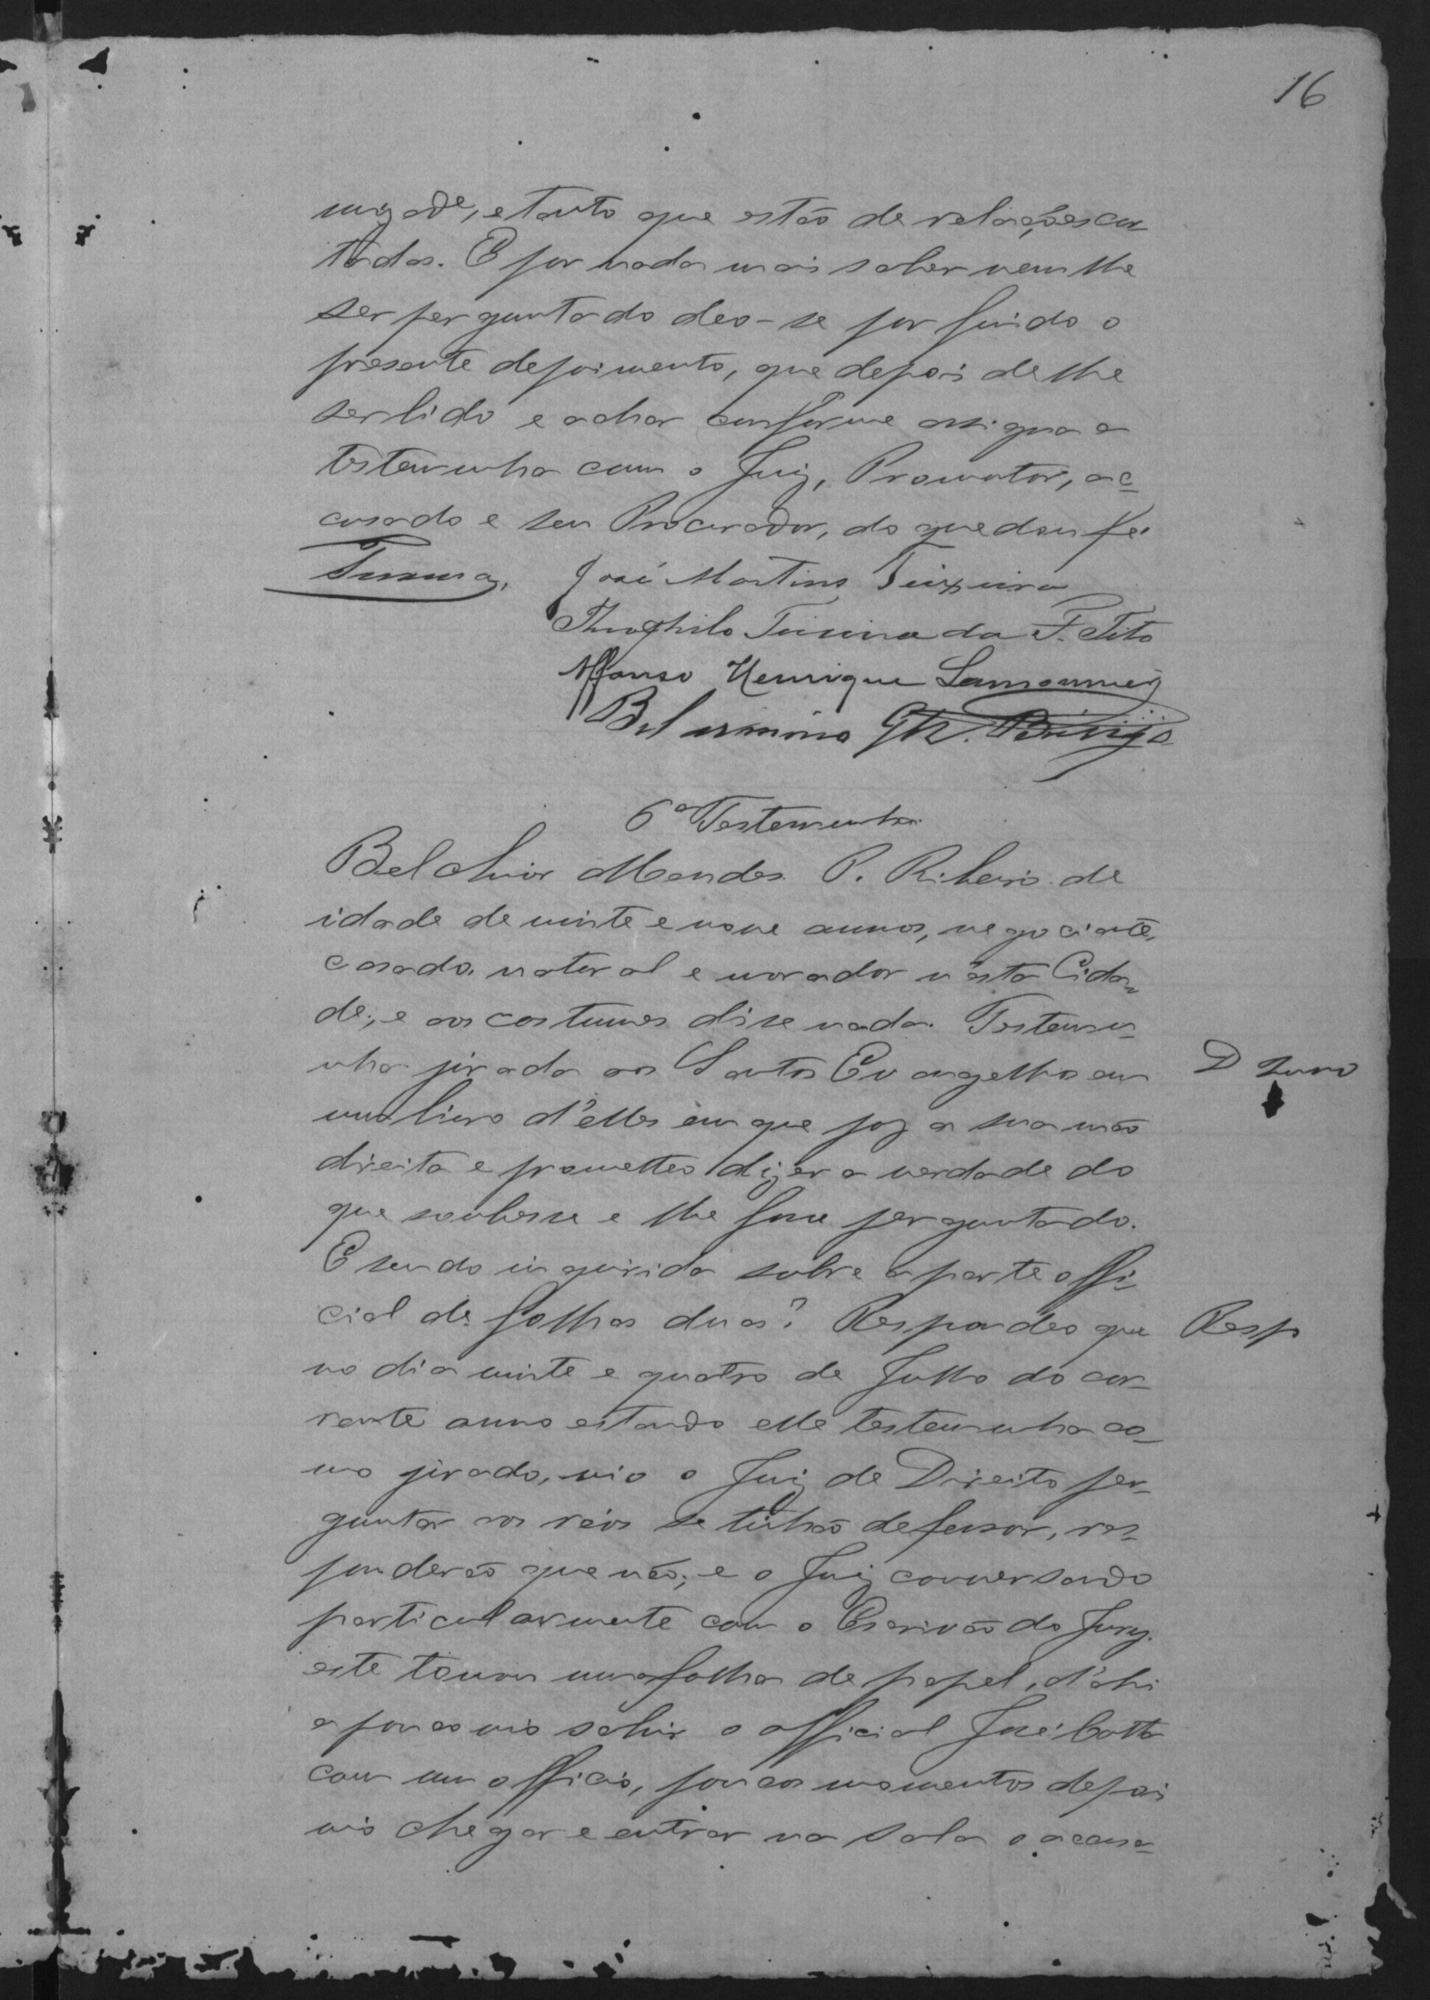 16
mizade, e tanto que estão de relações cor
tadas. E por nada mais saber nem lhe
ser perguntado deo-se por findo o
presente depoimento, que depois de lhe
ser lido e achar conforme assigna a
testemunha com o Juiz, Promotor, ac=
cusado e seu Procurador, do que dou fé.
José Martins Teixeira
Theophilo da F. Tito
Affonso Henrique
Belarmino
6ª Testemunha
Belchior Mendes P. Ribeiro de
idade de vinte e nove annos, negociante,
casado, natural e morador n'esta Cida=
de, e aos costumes disse nada. Testemu=
nha jurada aos Santos Evangelhos em
um livro d'elles em que poz a sua mão
direita e prometteo dizer a verdade do
que soubesse e lhe fosse perguntado.
E sendo inquirida sobre a parte offi=
cial de folhas duas? Respondeo que
Resp
no dia vinte e quatro de Julho do cor=
rente anno estando elle testemunha co=
mo jurado, vio o Juiz de Direito per=
guntar aos réos se tinhão defensor, res=
ponderão que não; e o Juiz conversando
particularmente com o Escrivão do Jury.
este tomou uma folha de papel, d'ahi
a pouco vio sahir o official José Cotta
com um officio, poucos momentos depois
vio chegar e entrar na sala o accusa=